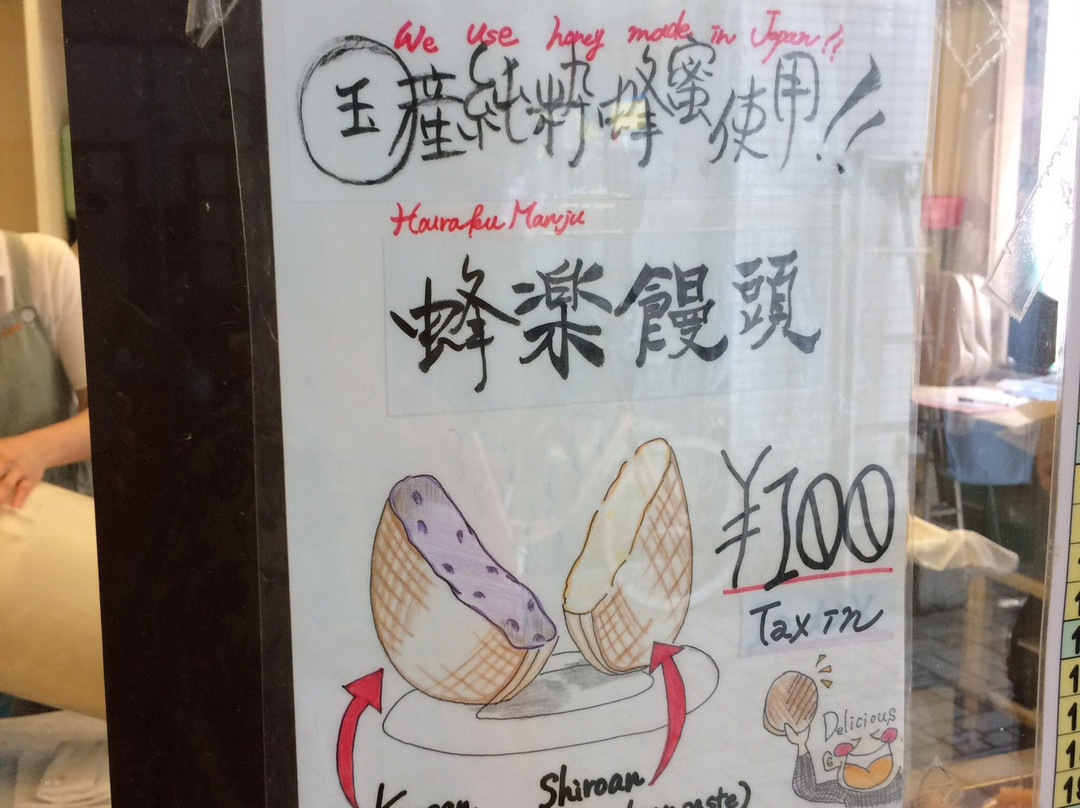 We use honey made in Japan!!
国産純粋蜂蜜使用!!
Houraku Manju
蜂楽饅頭
¥100
Tax in
Delicious
Shiroan
paste)